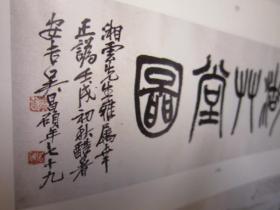 艸堂圖
湘雲先生雅屬率
正譌壬戌初秋
安吉吳昌碩年七十九